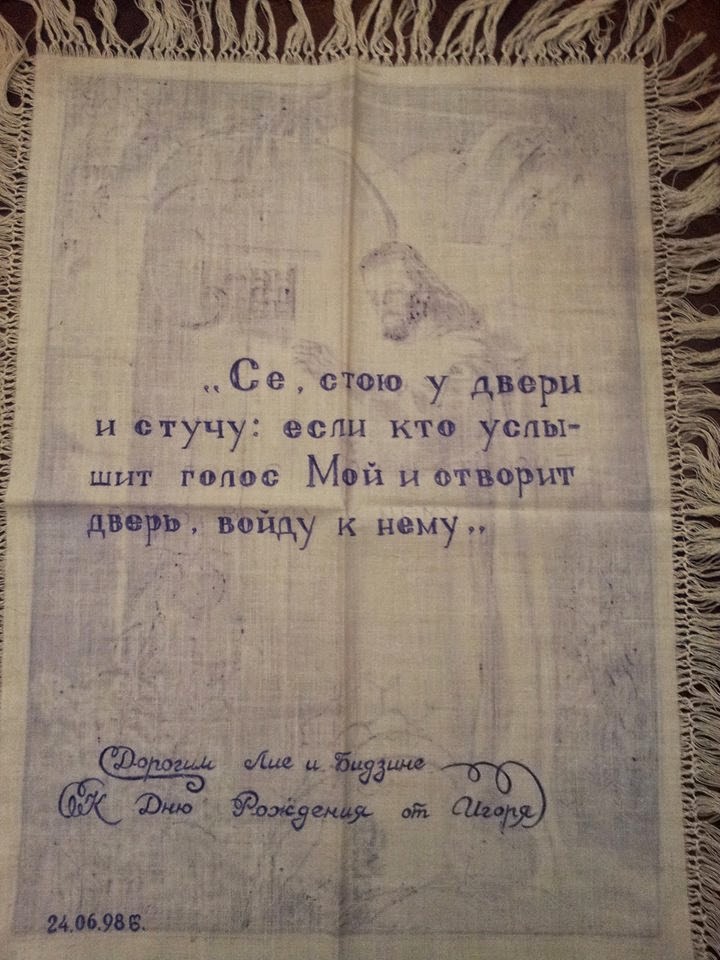 „Се, стою у двери
и стучу: если кто услы-
шит голос Мой и отворит
дверь, войду к нему„
Дорогим Лие и Бидзине
К Дню Рождения от Игоря
24.06.98г.